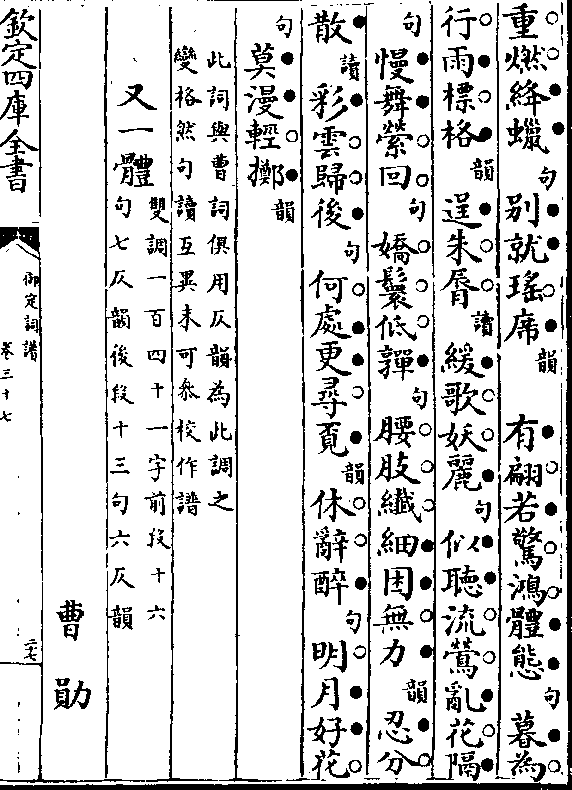 重燃絳蠟句别就瑤席韻有翩若驚鴻體態句暮為
行雨標格韻逞朱脣讀緩歌妖麗句似聽流鶯亂花隔
句慢舞縈回句嬌鬟低嚲句腰肢纖細困無力韻忍分
散讀彩雲歸後句何處更尋覓韻休辭醉句明月好花
句莫漫輕擲韻
此詞與曹詞俱用仄韻為此調之
變格然句讀互異未可叅校作譜
又一體雙調一百四十一字前段十六
句七仄韻後段十三句六仄韻
曹勛
欽定四庫全書
御定詞譜
卷三十七
二七